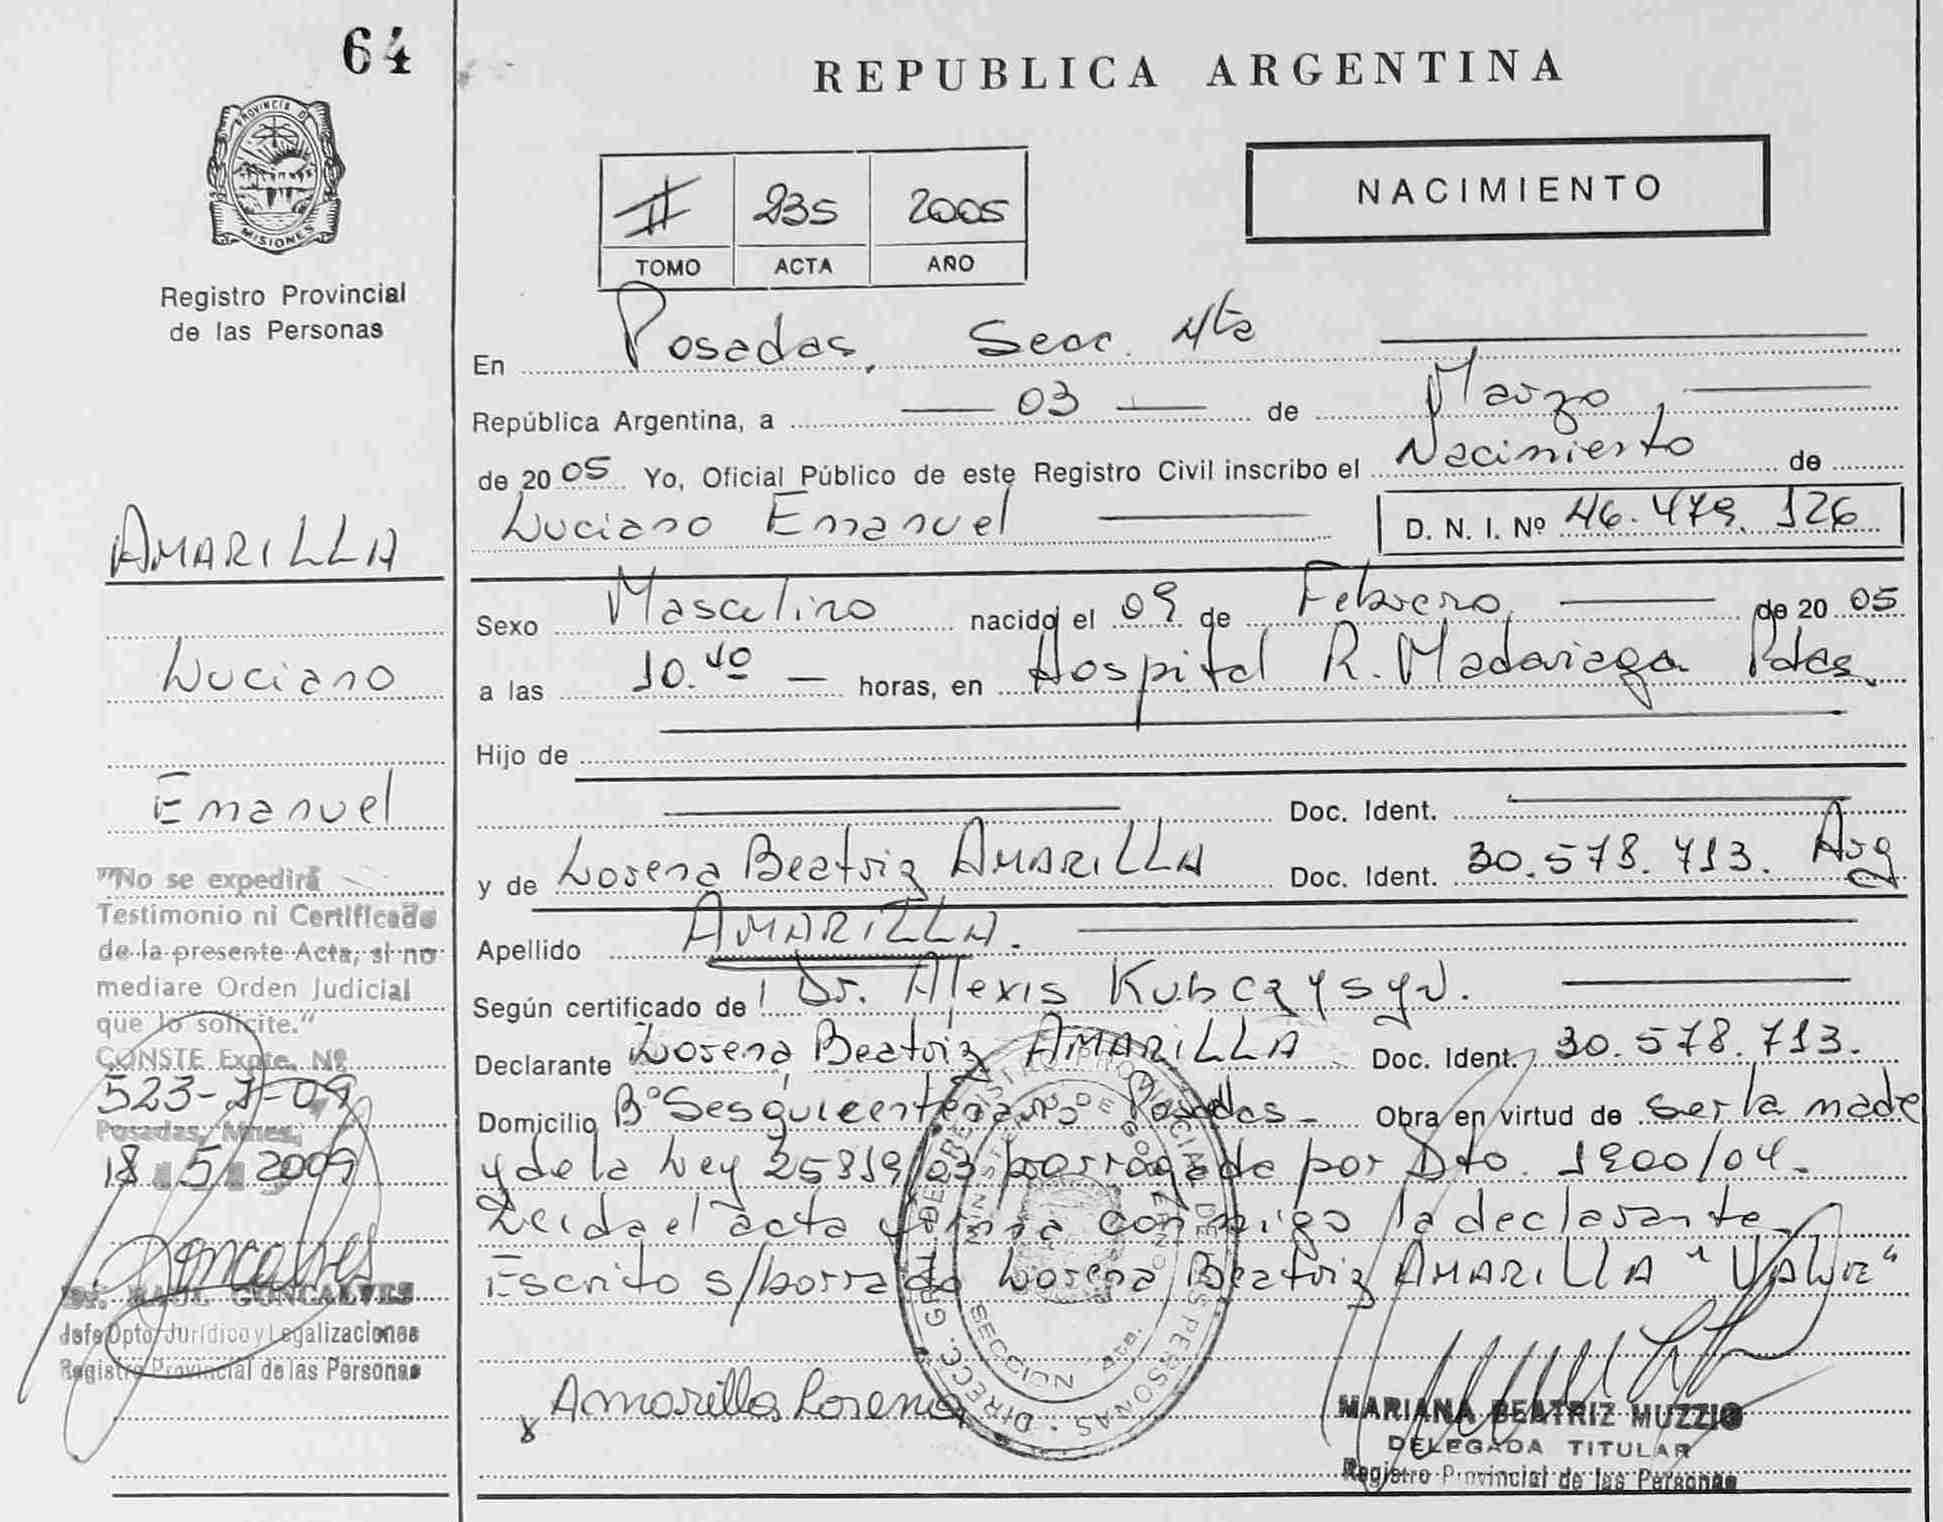 64
REPUBLICA ARGENTINA
PROVINCIA DE
MISIONES
Registro Provincial
de las Personas
II 235 2005
TOMO ACTA AÑO
NACIMIENTO
En Posadas, Secc. 4ta
República Argentina, a 03 de Marzo,
de 2005 Yo, Oficial Público de este Registro Civil inscribo el Nacimiento de
Luciano Emanuel D. N. I. Nº 46.479.126
Sexo Masculino nacido el 09 de Febrero, de 2005
a las 10.40 horas, en Hospital R. Madariaga Pdas.
Hijo de
Doc. Ident.
y de Lorena Beatriz AMARILLA Doc. Ident. 30.578.713. Arg
Apellido AMARILLA.
Según certificado de Dr. Alexis
Declarante Lorena Beatriz AMARILLA Doc. Ident. 30.578.713.
Domicilio Bº Sesquicentenario Posadas Obra en virtud de ser la madre
y de la Ley 25819/03 prorrogada por Dto. 1900/04.
Leida el acta firma conmigo la declarante.
Escrito s/borrado Lorena Beatriz AMARILLA "VALE"
Amarilla Lorena
MARIANA BEATRIZ MUZZIO
DELEGADA TITULAR
Registro Provincial de las Personas
AMARILLA
Luciano
Emanuel
"No se expedirá
Testimonio ni Certificado
de la presente Acta, si no
mediare Orden Judicial
que lo solicite."
CONSTE Expte. Nº
523-J-09
Posadas, Mnes,
18 5 2009
Goncalves
Dr. RAUL GONCALVES
Jefe Dpto. Jurídico y Legalizaciones
Registro Provincial de las Personas
DIRECC. GRAL. DE REGISTRO PROVINCIAL DE LAS PERSONAS
MINISTERIO DE GOBIERNO
SECCION 4ta.